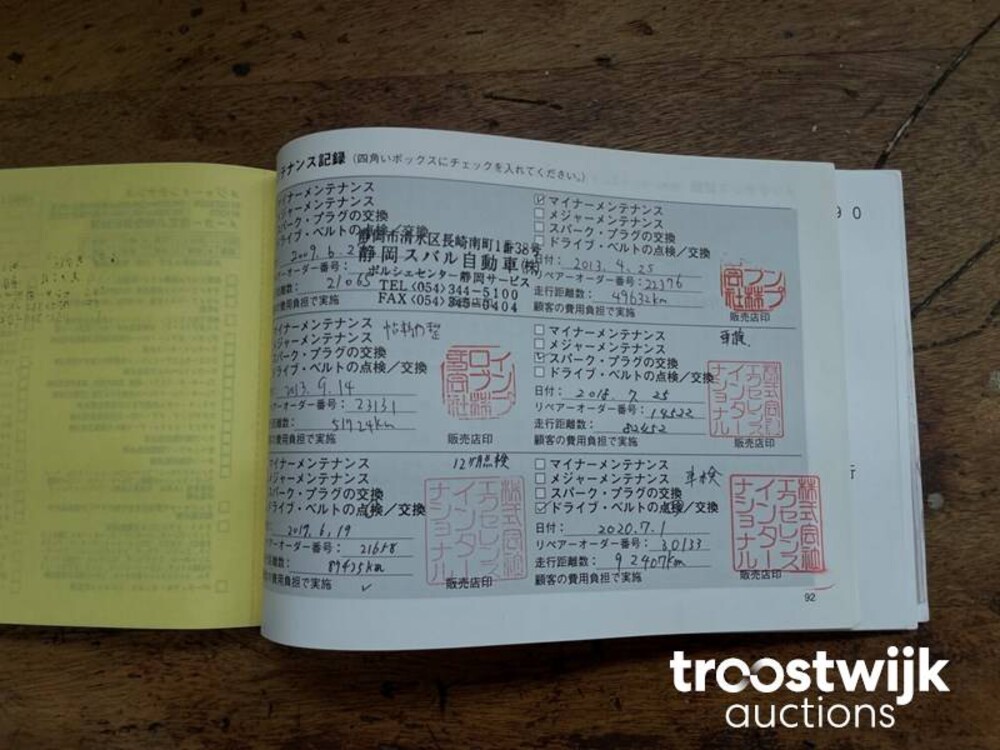 テナンス記録 (四角いボックスにチェックを入れてください。)
イナーメンテナンス
メジャーメンテナンス
スパーク・プラグの交換
ドライブ・ベルトの点検/交換
静岡市清水区長崎南町1番38号
2009.6.2
静岡スバル自動車(株)
アーオーダー番号:
ポルシェセンター静岡サービス
距離数: 21065
TEL<054>344-5100
費用負担で実施
FAX<054>345-0404
マイナーメンテナンス
メジャーメンテナンス
スパーク・プラグの交換
ドライブ・ベルトの点検/交換
日付: 2013.4.25
リペアーオーダー番号: 22376
走行距離数: 49632km
顧客の費用負担で実施
販売店印
イナーメンテナンス
メジャーメンテナンス
スパーク・プラグの交換
ドライブ・ベルトの点検/交換
2013.9.14
アーオーダー番号: 23131
距離数: 51724km
の費用負担で実施
販売店印
マイナーメンテナンス
車検
メジャーメンテナンス
スパーク・プラグの交換
ドライブ・ベルトの点検/交換
日付: 2018.7.25
リペアーオーダー番号: 14522
走行距離数: 82452
顧客の費用負担で実施
株式会社
エクセレンス
インター
ナショナル
販売店印
マイナーメンテナンス
12ヶ月点検
メジャーメンテナンス
スパーク・プラグの交換
ドライブ・ベルトの点検/交換
2019.6.19
アーオーダー番号: 21658
距離数: 89435km
の費用負担で実施
株式会社
エクセレンス
インター
ナショナル
販売店印
マイナーメンテナンス
車検
メジャーメンテナンス
スパーク・プラグの交換
ドライブ・ベルトの点検/交換
日付: 2020.7.1
リペアーオーダー番号: 30133
走行距離数: 92407km
顧客の費用負担で実施
株式会社
エクセレンス
インター
ナショナル
販売店印
92
90
troostwijk
auctions